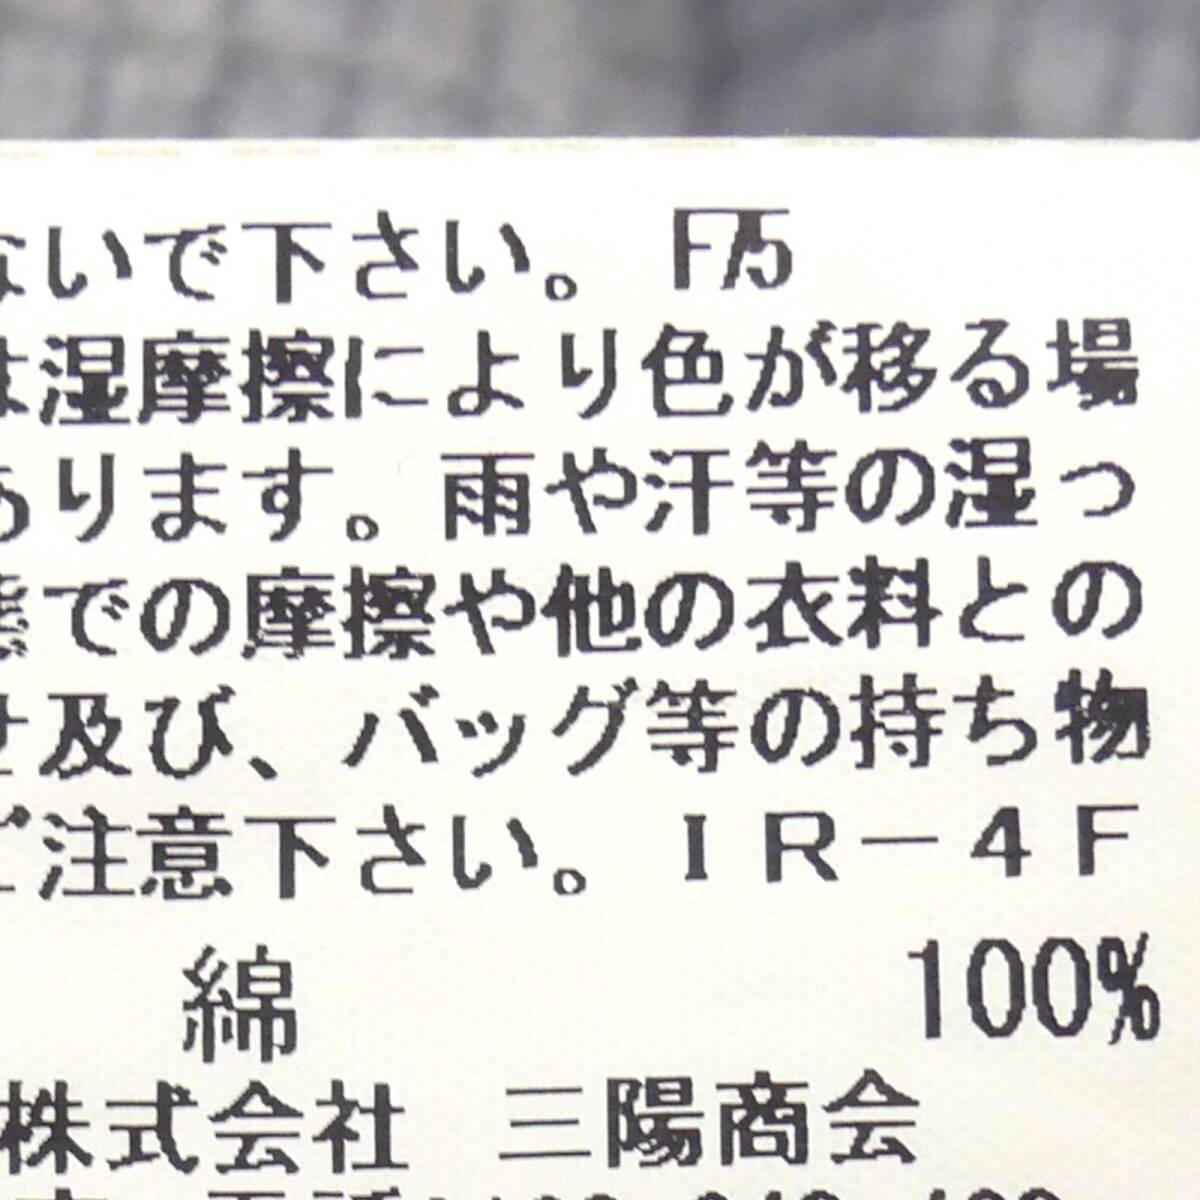 ないで下さい。 F/5
は湿摩擦により色が移る場
あります。雨や汗等の湿っ
態での摩擦や他の衣料との
せ及び、バッグ等の持ち物
ご注意下さい。IR-4F
綿 100%
株式会社 三陽商会